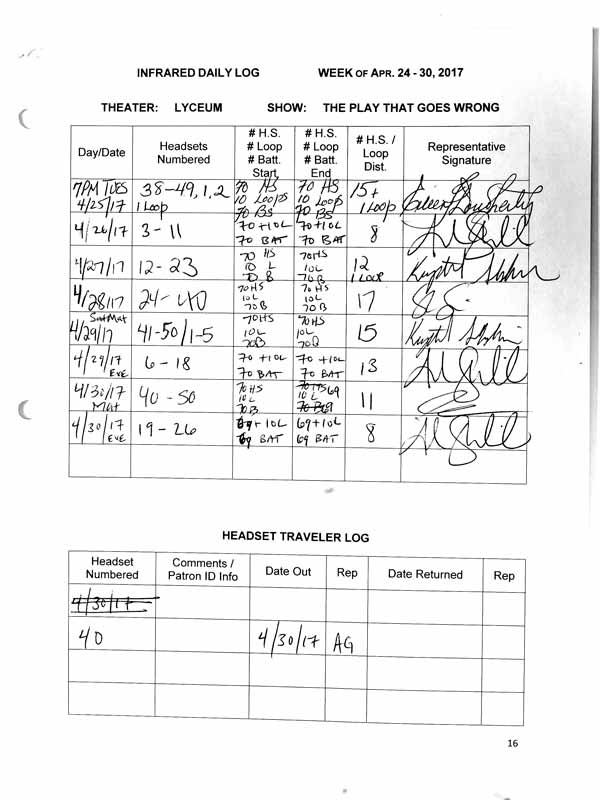 INFRARED DAILY LOG WEEK OF APR. 24 - 30, 2017
THEATER: LYCEUM SHOW: THE PLAY THAT GOES WRONG
Day/Date
Headsets
Numbered
# H.S.
# Loop
# Batt.
Start
# H.S.
# Loop
# Batt.
End
# H.S. /
Loop
Dist.
Representative
Signature
7PM TUES
4/25/17
38-49, 1, 2
1 Loop
70 HS
10 Loops
70 BS
70 HS
10 Loop
70 BS
15+
1 Loop
4/26/17
3-11
70+10L
70 BAT
70+10L
70 BAT
8
4/27/17
12-23
70 HS
10 L
70 B
70HS
10L
70B
12
1 Loop
4/28/17
24-40
70HS
10L
70B
70HS
10L
70B
17
Sat Mat
4/29/17
41-50/1-5
70HS
10L
70B
70HS
10L
70B
15
4/29/17
EVE
6-18
70+10L
70 BAT
70+10L
70 BAT
13
4/30/17
Mat
40-50
70HS
10L
70B
70HS 69
10 L
70B 69
11
4/30/17
EVE
19-26
69+10L
69 BAT
69+10L
69 BAT
8
HEADSET TRAVELER LOG
Headset
Numbered
Comments /
Patron ID Info
Date Out
Rep
Date Returned
Rep
4/30/17
40
4/30/17
AG
16